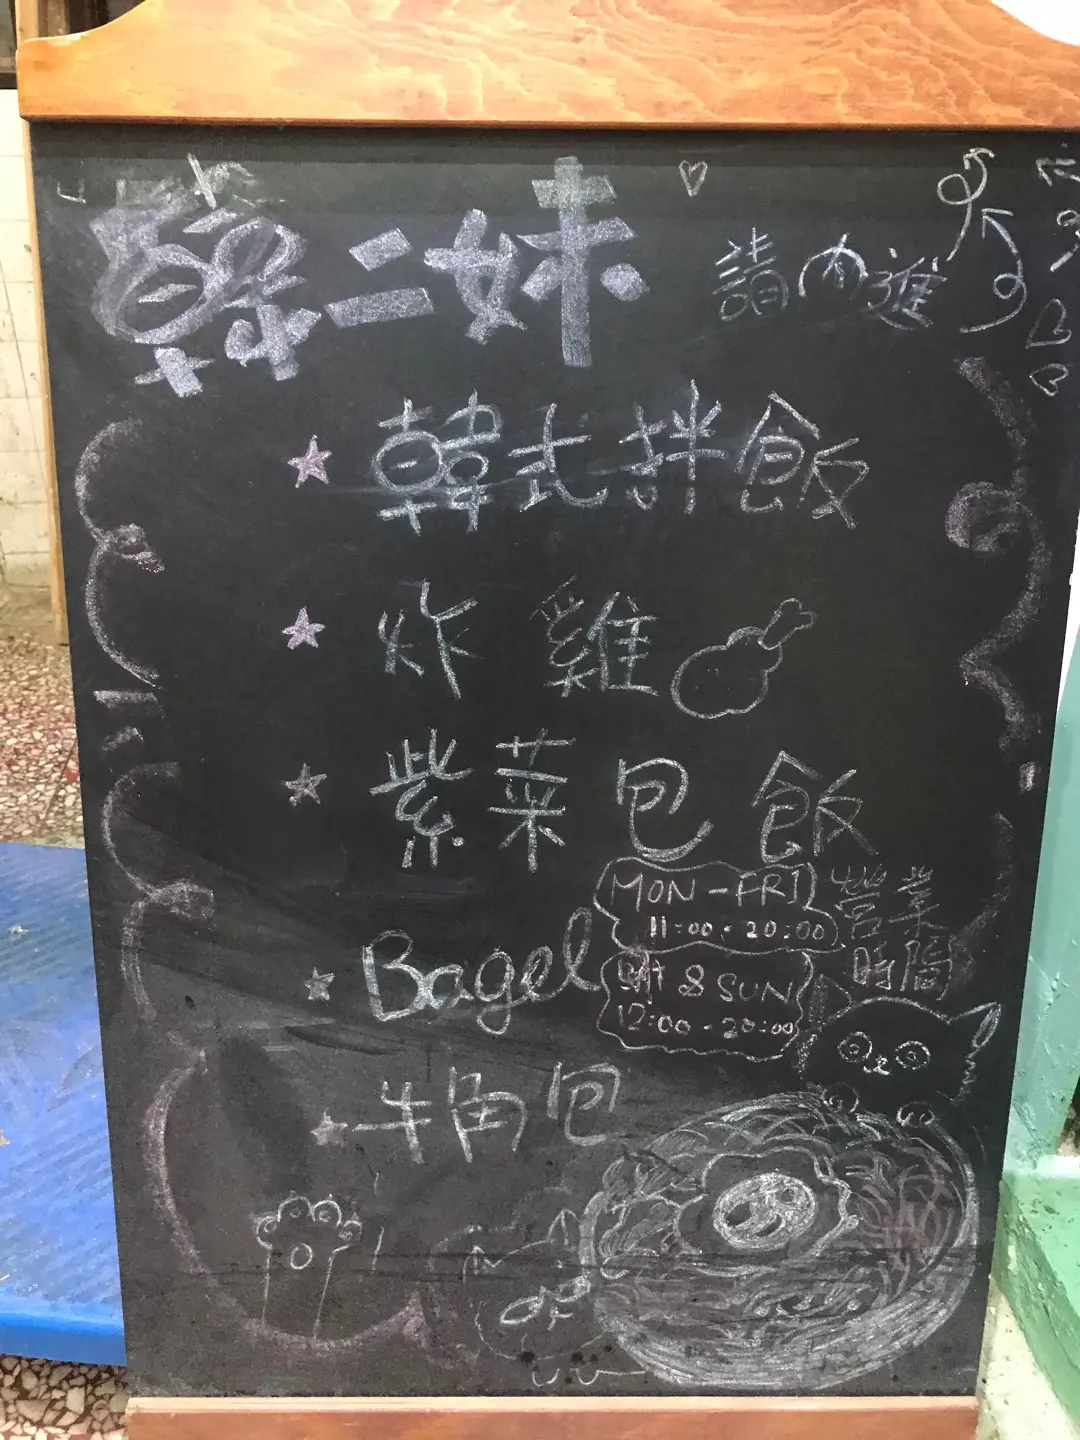 韓二妹 請內進
韓式拌飯
炸雞
紫菜包飯
MON-FRI
11:00-20:00
營業
時間
Bagel
SAT & SUN
12:00-20:00
牛角包